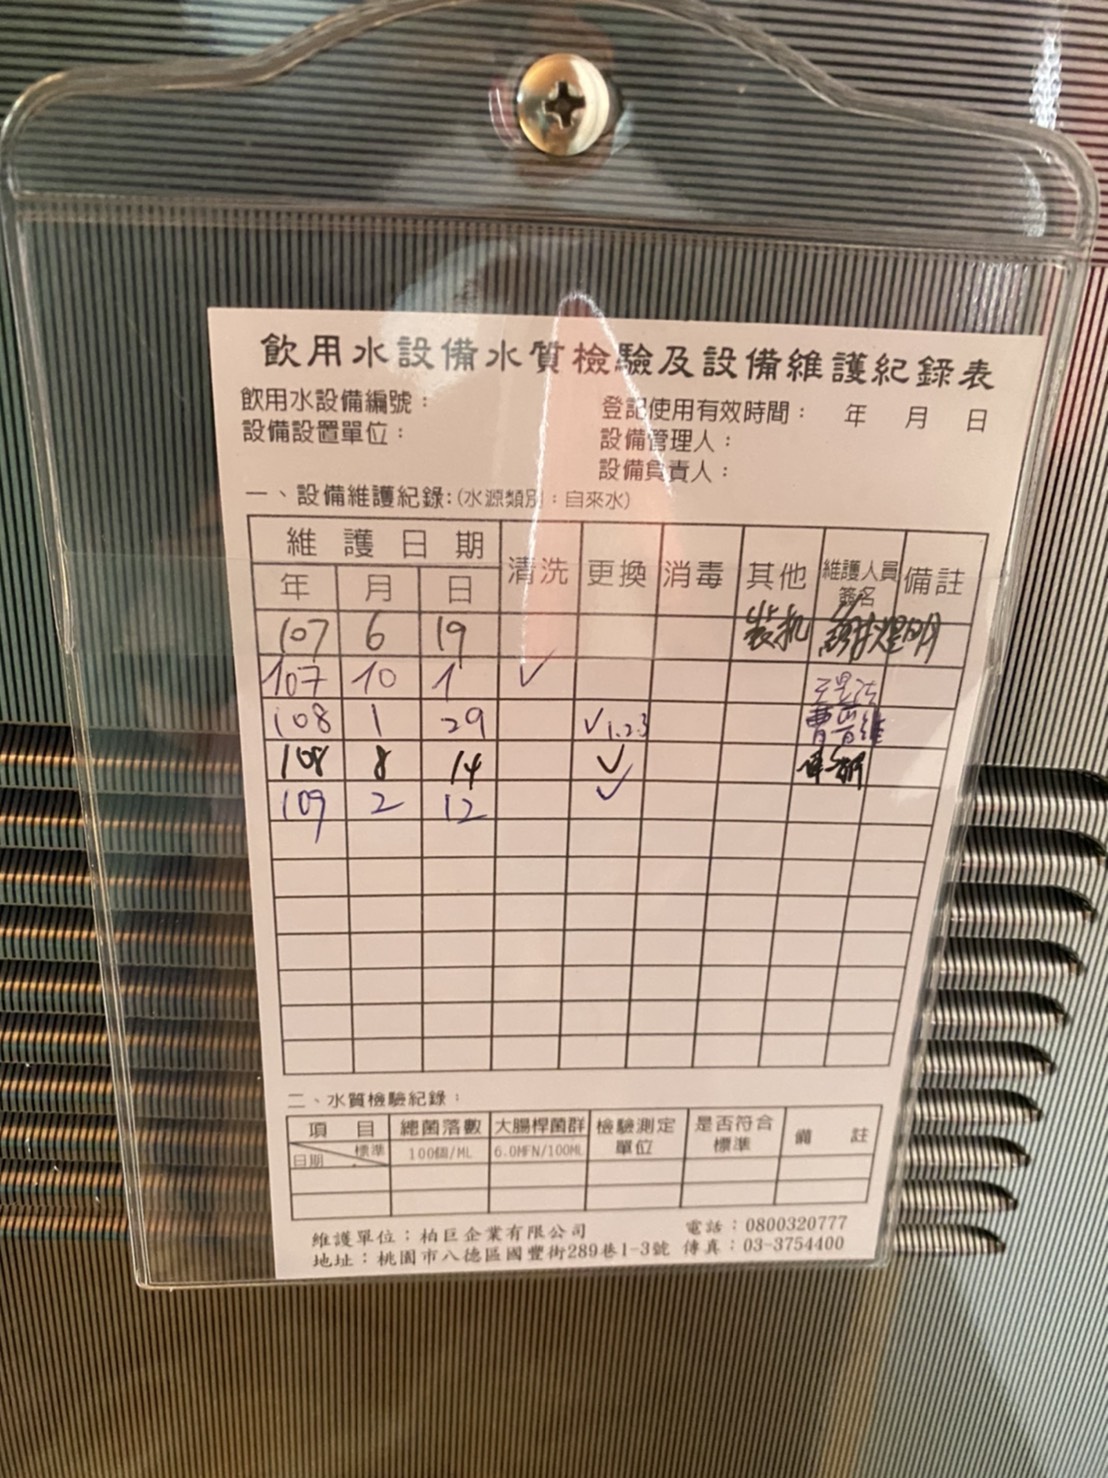 飲用水設備水質檢驗及設備維護紀錄表
飲用水設備編號：
登記使用有效時間： 年 月 日
設備設置單位：
設備管理人：
設備負責人：
一、設備維護紀錄:(水源類別：自來水)
維護日期 清洗 更換 消毒 其他 維護人員簽名 備註
年 月 日
107 6 19 裝机
107 10 1 ✓
108 1 29 ✓1.2.3 曹晉維
108 8 14 ✓
109 2 12 ✓
二、水質檢驗紀錄：
項目 總菌落數 大腸桿菌群 檢驗測定單位 是否符合標準 備註
日期 標準 100個/ML 6.0MFN/100ML
維護單位：柏巨企業有限公司 電話：0800320777
地址：桃園市八德區國豐街289巷1-3號 傳真：03-3754400